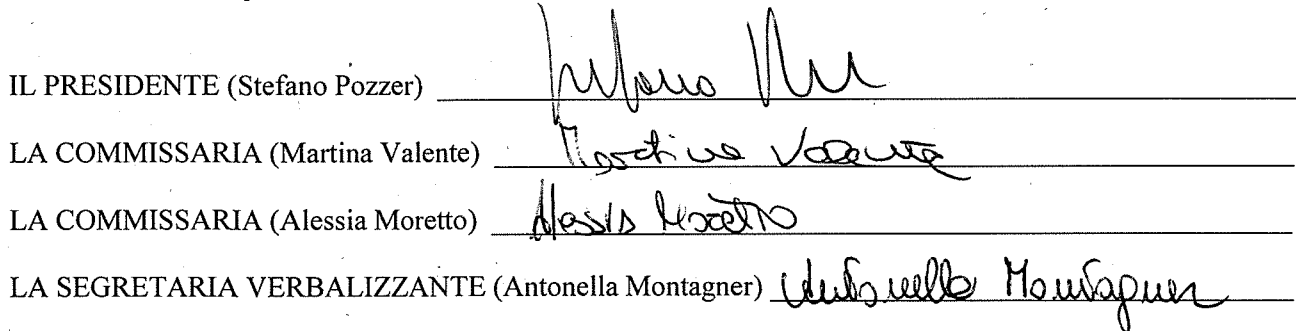 IL PRESIDENTE (Stefano Pozzer) Stefano
LA COMMISSARIA (Martina Valente) Martina Valente
LA COMMISSARIA (Alessia Moretto) Alessia Moretto
LA SEGRETARIA VERBALIZZANTE (Antonella Montagner) Antonella Montagner